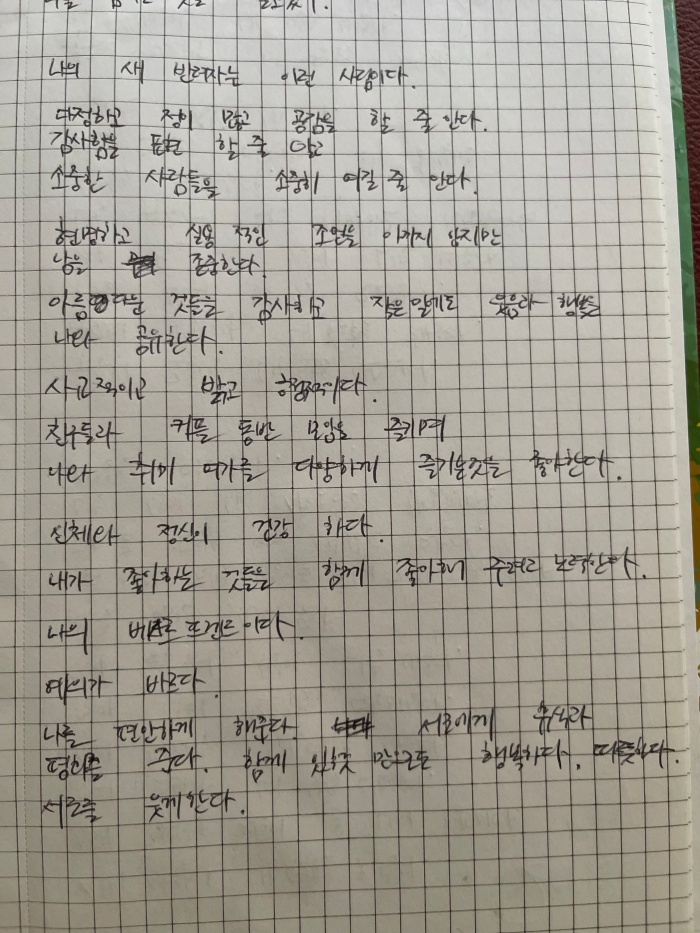 나의 새 반려자는 이런 사람이다.
다정하고 정이 많고 공감을 할 줄 안다.
감사함을 표현 할 줄 알고
소중한 사람들을 소중히 여길 줄 안다.
현명하고 실용적인 조언을 아끼지 않지만
남을 존중한다.
아름다운 것들을 감사하고 작은 일에도 웃음과 행복을
나와 공유한다.
사교적이고 밝고 긍정적이다.
친구들과 커플 동반 모임을 즐기며
나와 취미 여가를 다양하게 즐기는것을 좋아한다.
신체와 정신이 건강 하다.
내가 좋아하는 것들을 함께 좋아해 주려고 노력한다.
나의 베스트 프렌드이다.
예의가 바르다.
나를 편안하게 해준다. 서로에게 휴식과
평화를 준다. 함께 있는것 만으로도 행복하다. 따뜻하다.
서로를 웃게한다.